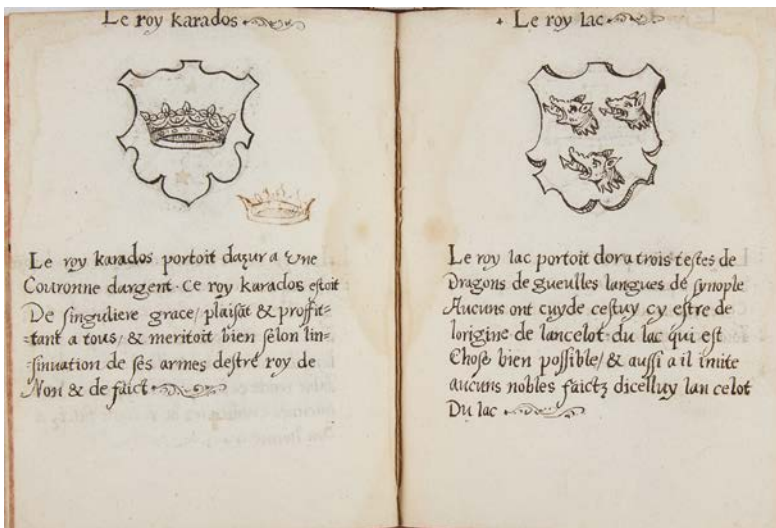 Le roy karados
Le roy karados portoit dazur a une
Couronne dargent. Ce roy karados estoit
De singuliere grace/ plaisãt & proffit=
=tant a tous/ & meritoit bien selon lin=
=sinuation de ses armes destre roy de
Non & de faict
+ Le roy lac
Le roy lac portoit dor a trois testes de
Dragons de gueulles langues de synople
Aucuns ont cuyde cestuy cy estre de
lorigine de lancelot du lac qui est
Chose bien possible/ & aussi a il imite
aucuns nobles faictz dicelluy lan celot
Du lac